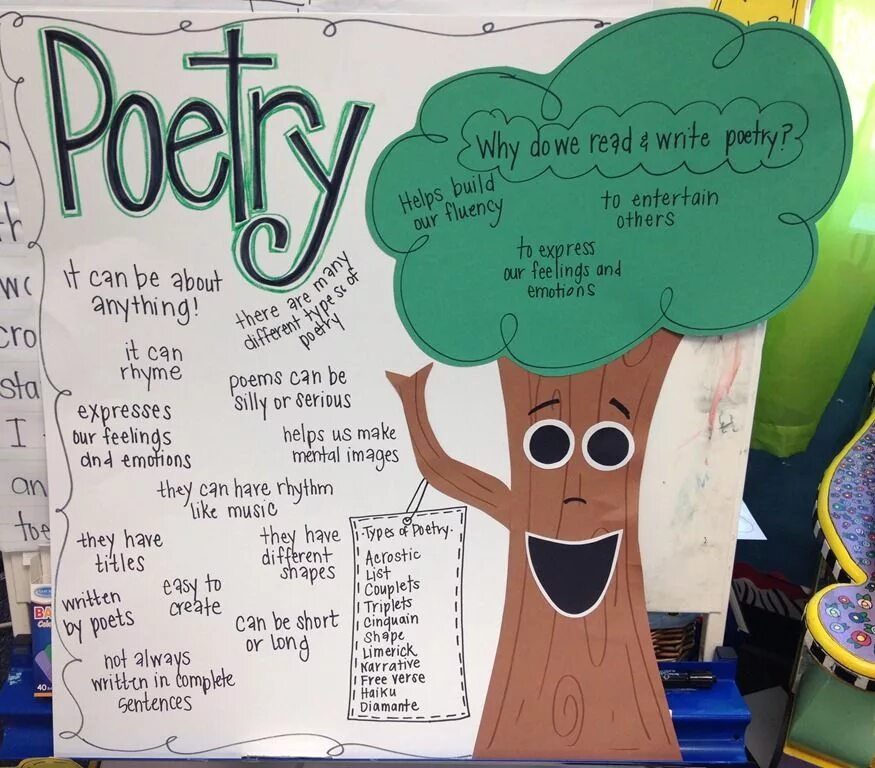 Poetry
Why do we read & write poetry?
Helps build
our fluency
to entertain
others
to express
our feelings and
emotions
it can be about
anything!
there are many
different types of
poetry
it can
rhyme
poems can be
silly or serious
expresses
our feelings
and emotions
helps us make
mental images
they can have rhythm
like music
they have
titles
they have
different
shapes
written
by poets
easy to
create
can be short
or long
not always
written in complete
sentences
Types of Poetry
Acrostic
List
Couplets
Triplets
Cinquain
Shape
Limerick
Narrative
Free verse
Haiku
Diamante
cro
sta
I
an
toe
40